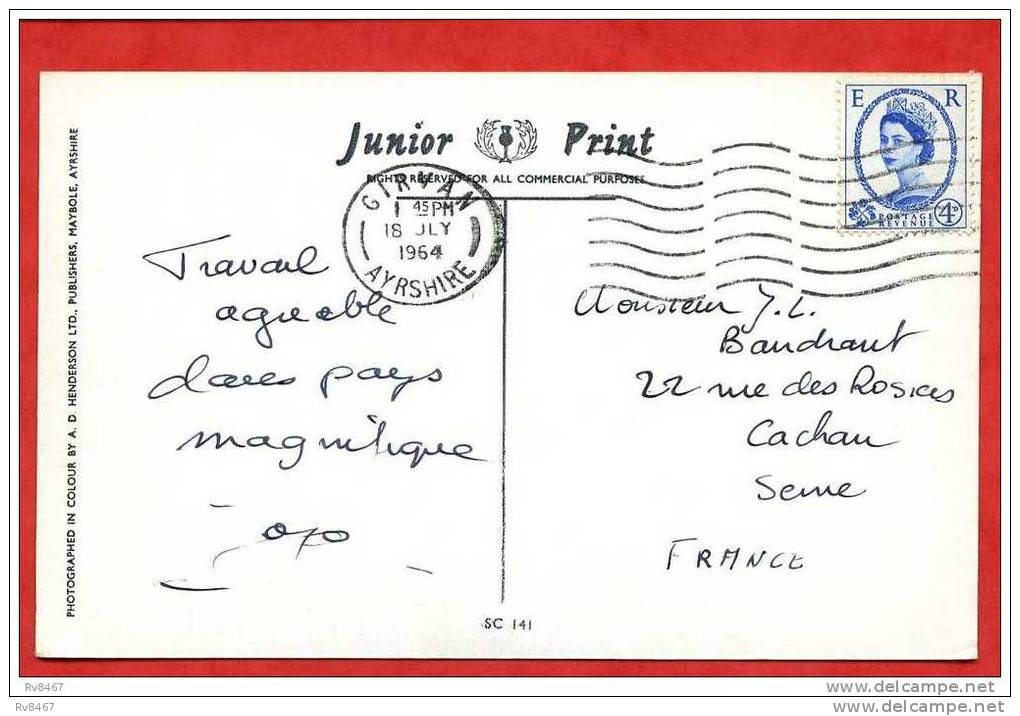 Junior Print
RIGHTS RESERVED FOR ALL COMMERCIAL PURPOSES
E R
POSTAGE
REVENUE
4D
GIRVAN
1 45 PM
18 JLY
1964
AYRSHIRE
Travail
agréable
dans pays
magnifique
Jojo
Monsieur J. L.
Baudrant
22 rue des Rosiers
Cachan
Seine
FRANCE
PHOTOGRAPHED IN COLOUR BY A. D. HENDERSON LTD., PUBLISHERS, MAYBOLE, AYRSHIRE
SC 141
Rv8467
Rv8467
www.delcampe.net
www.delcampe.net